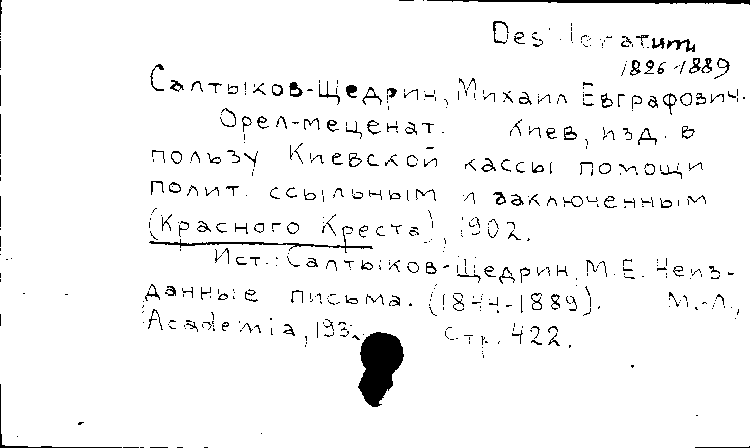 Desideratum
1826-1889
Салтыков-Щедрин, Михаил Евграфович.
Орел-меценат. Киев, изд. в
пользу Киевской кассы помощи
полит. ссыльным и заключенным
(Красного Креста), 1902.
Ист.: Салтыков-Щедрин, М.Е. Неиз-
данные письма. (1844-1889). М.-Л.,
Academia,
Стр. 422.